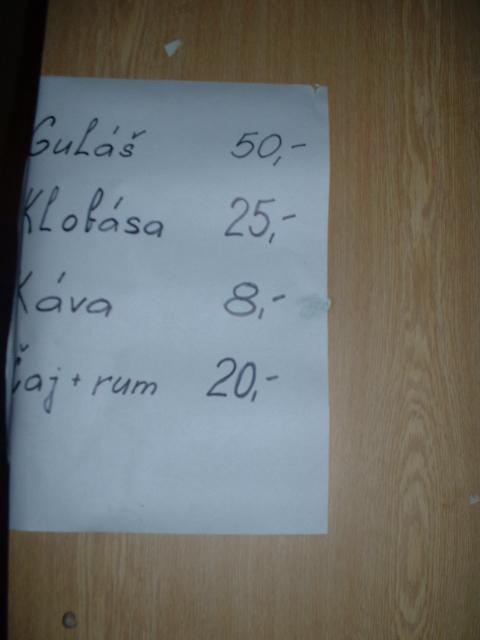 Guláš 50,-
Klobása 25,-
Káva 8,-
Čaj + rum 20,-